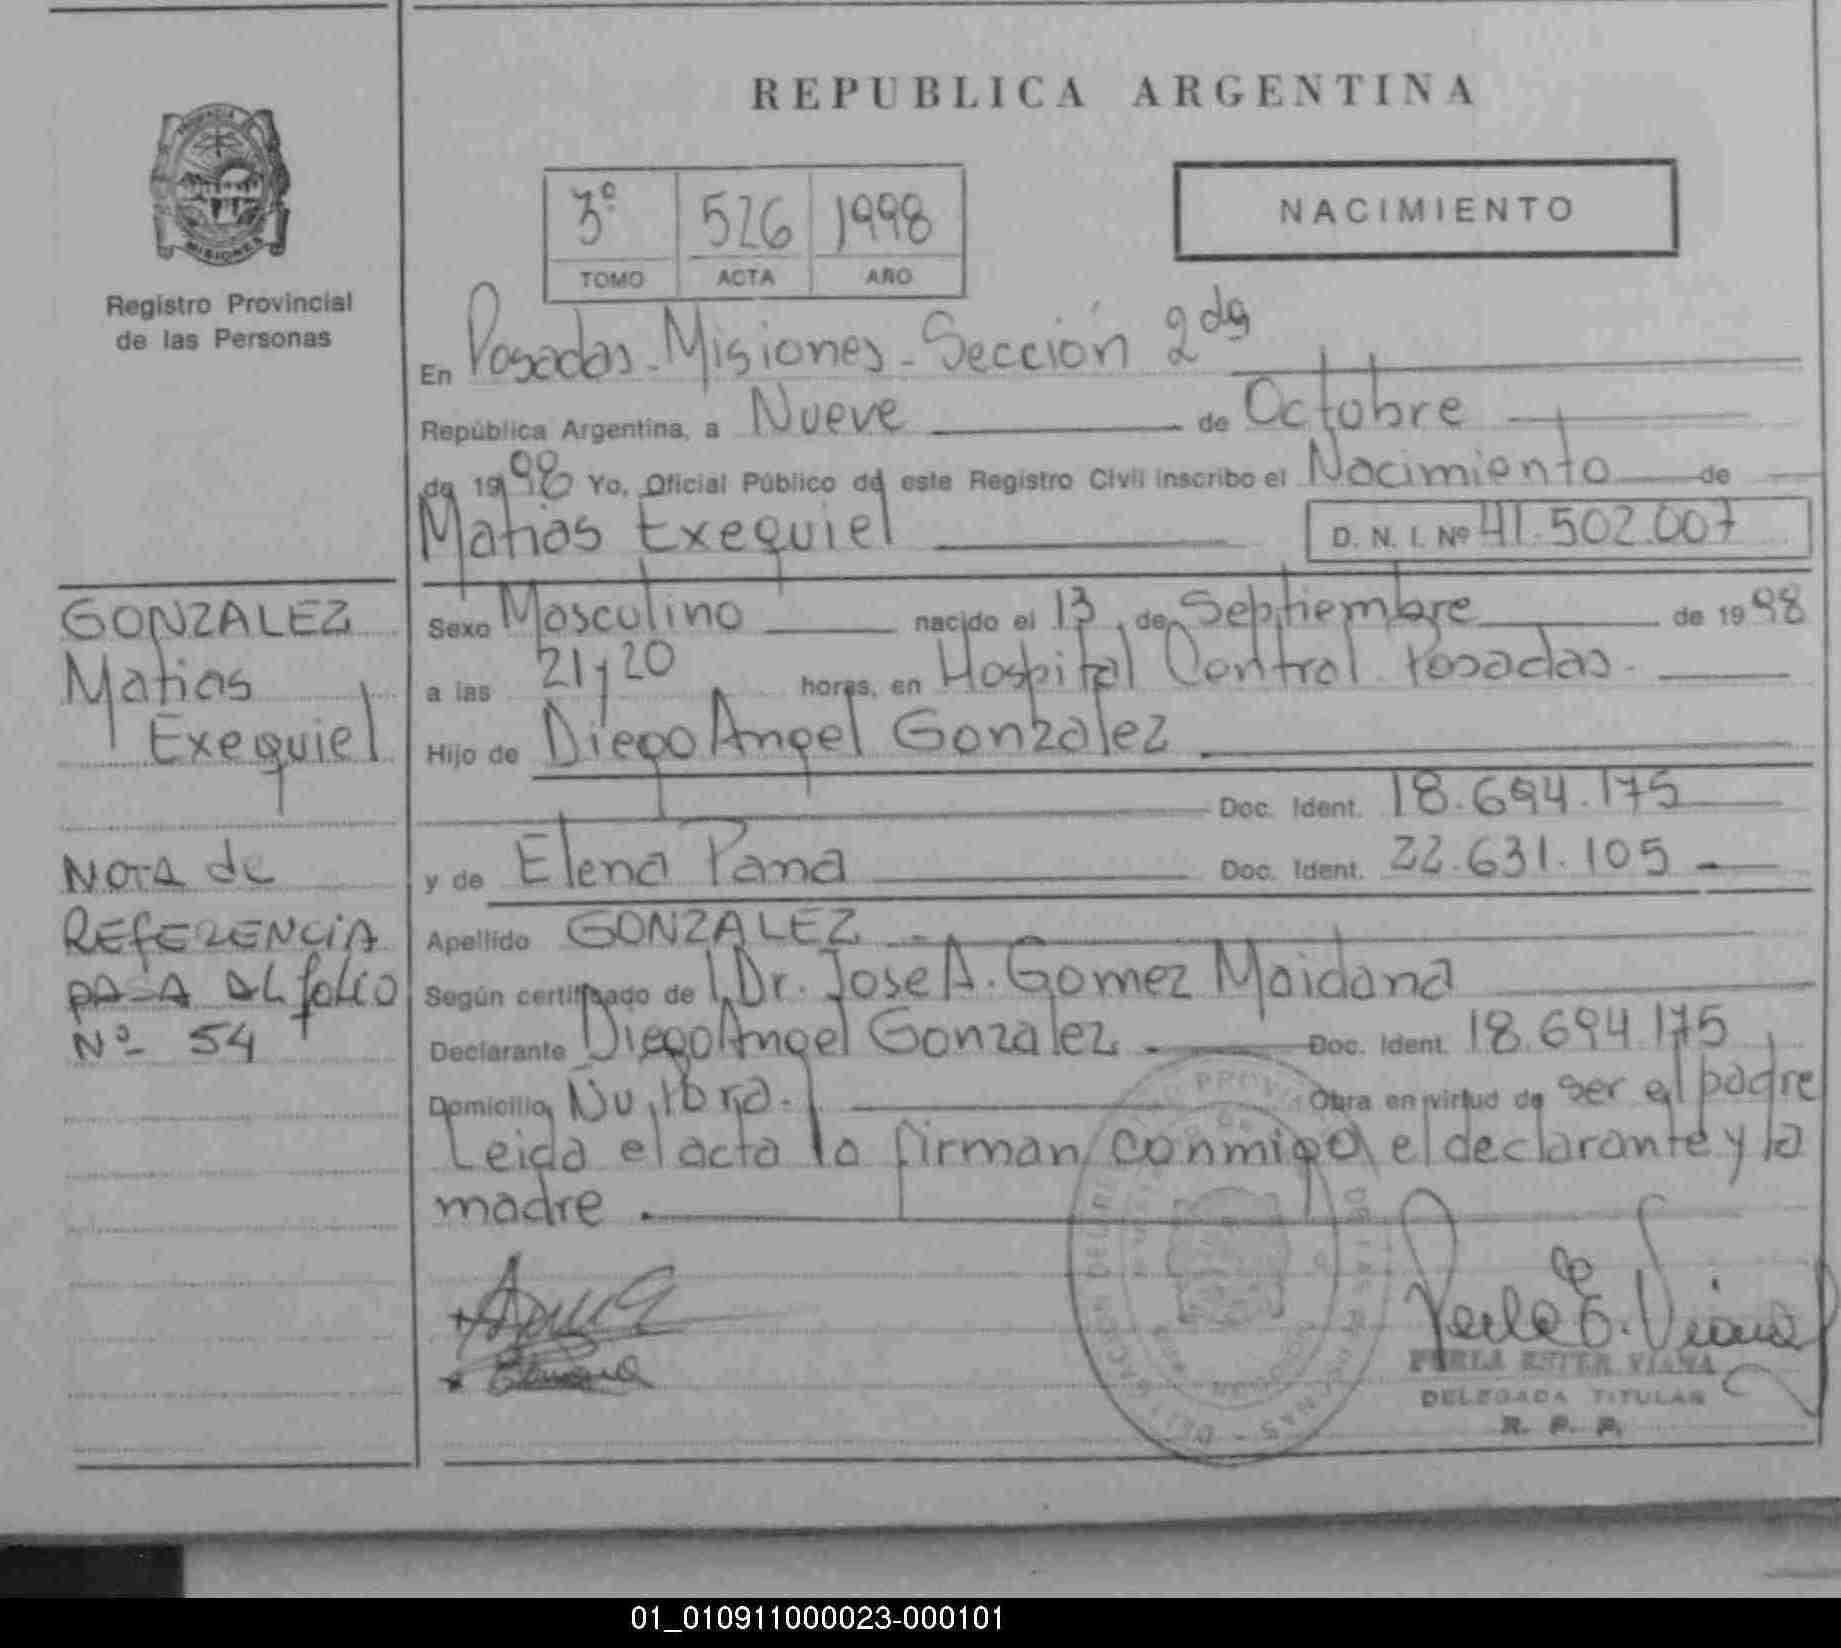 REPUBLICA ARGENTINA
3º 526 1998
TOMO ACTA AÑO
NACIMIENTO
Registro Provincial
de las Personas
En Posadas - Misiones - Sección 2da
República Argentina, a Nueve de Octubre
de 1998 Yo, Oficial Público de este Registro Civil inscribo el Nacimiento de
Matias Exequiel D. N. I. Nº 41.502.007
GONZALEZ
Matias
Exequiel
Sexo Masculino nacido el 13 de Septiembre de 1998
a las 21y20 horas, en Hospital Central Posadas.
Hijo de Diego Angel Gonzalez
Doc. Ident. 18.694.175
y de Elena Pana Doc. Ident. 22.631.105
NOTA de
REfERENCiA
PASA AL foLio
Nº 54
Apellido GONZALEZ
Según certificado de Dr. Jose A. Gomez Maidana
Declarante Diego Angel Gonzalez Doc. Ident. 18.694.175
Domicilio Obra en virtud de ser el padre
Leida el acta la firman conmigo el declarante y la
madre.
Perla E. Viana
PERLA ESTER VIANA
DELEGADA TITULAR
R. P. P.
01_010911000023-000101